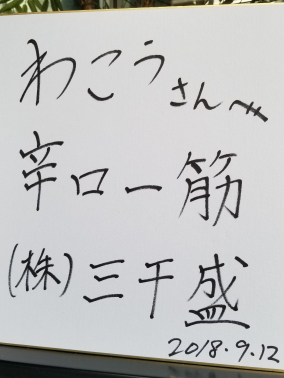 わこうさんへ
辛口一筋
(株)三千盛
2018.9.12